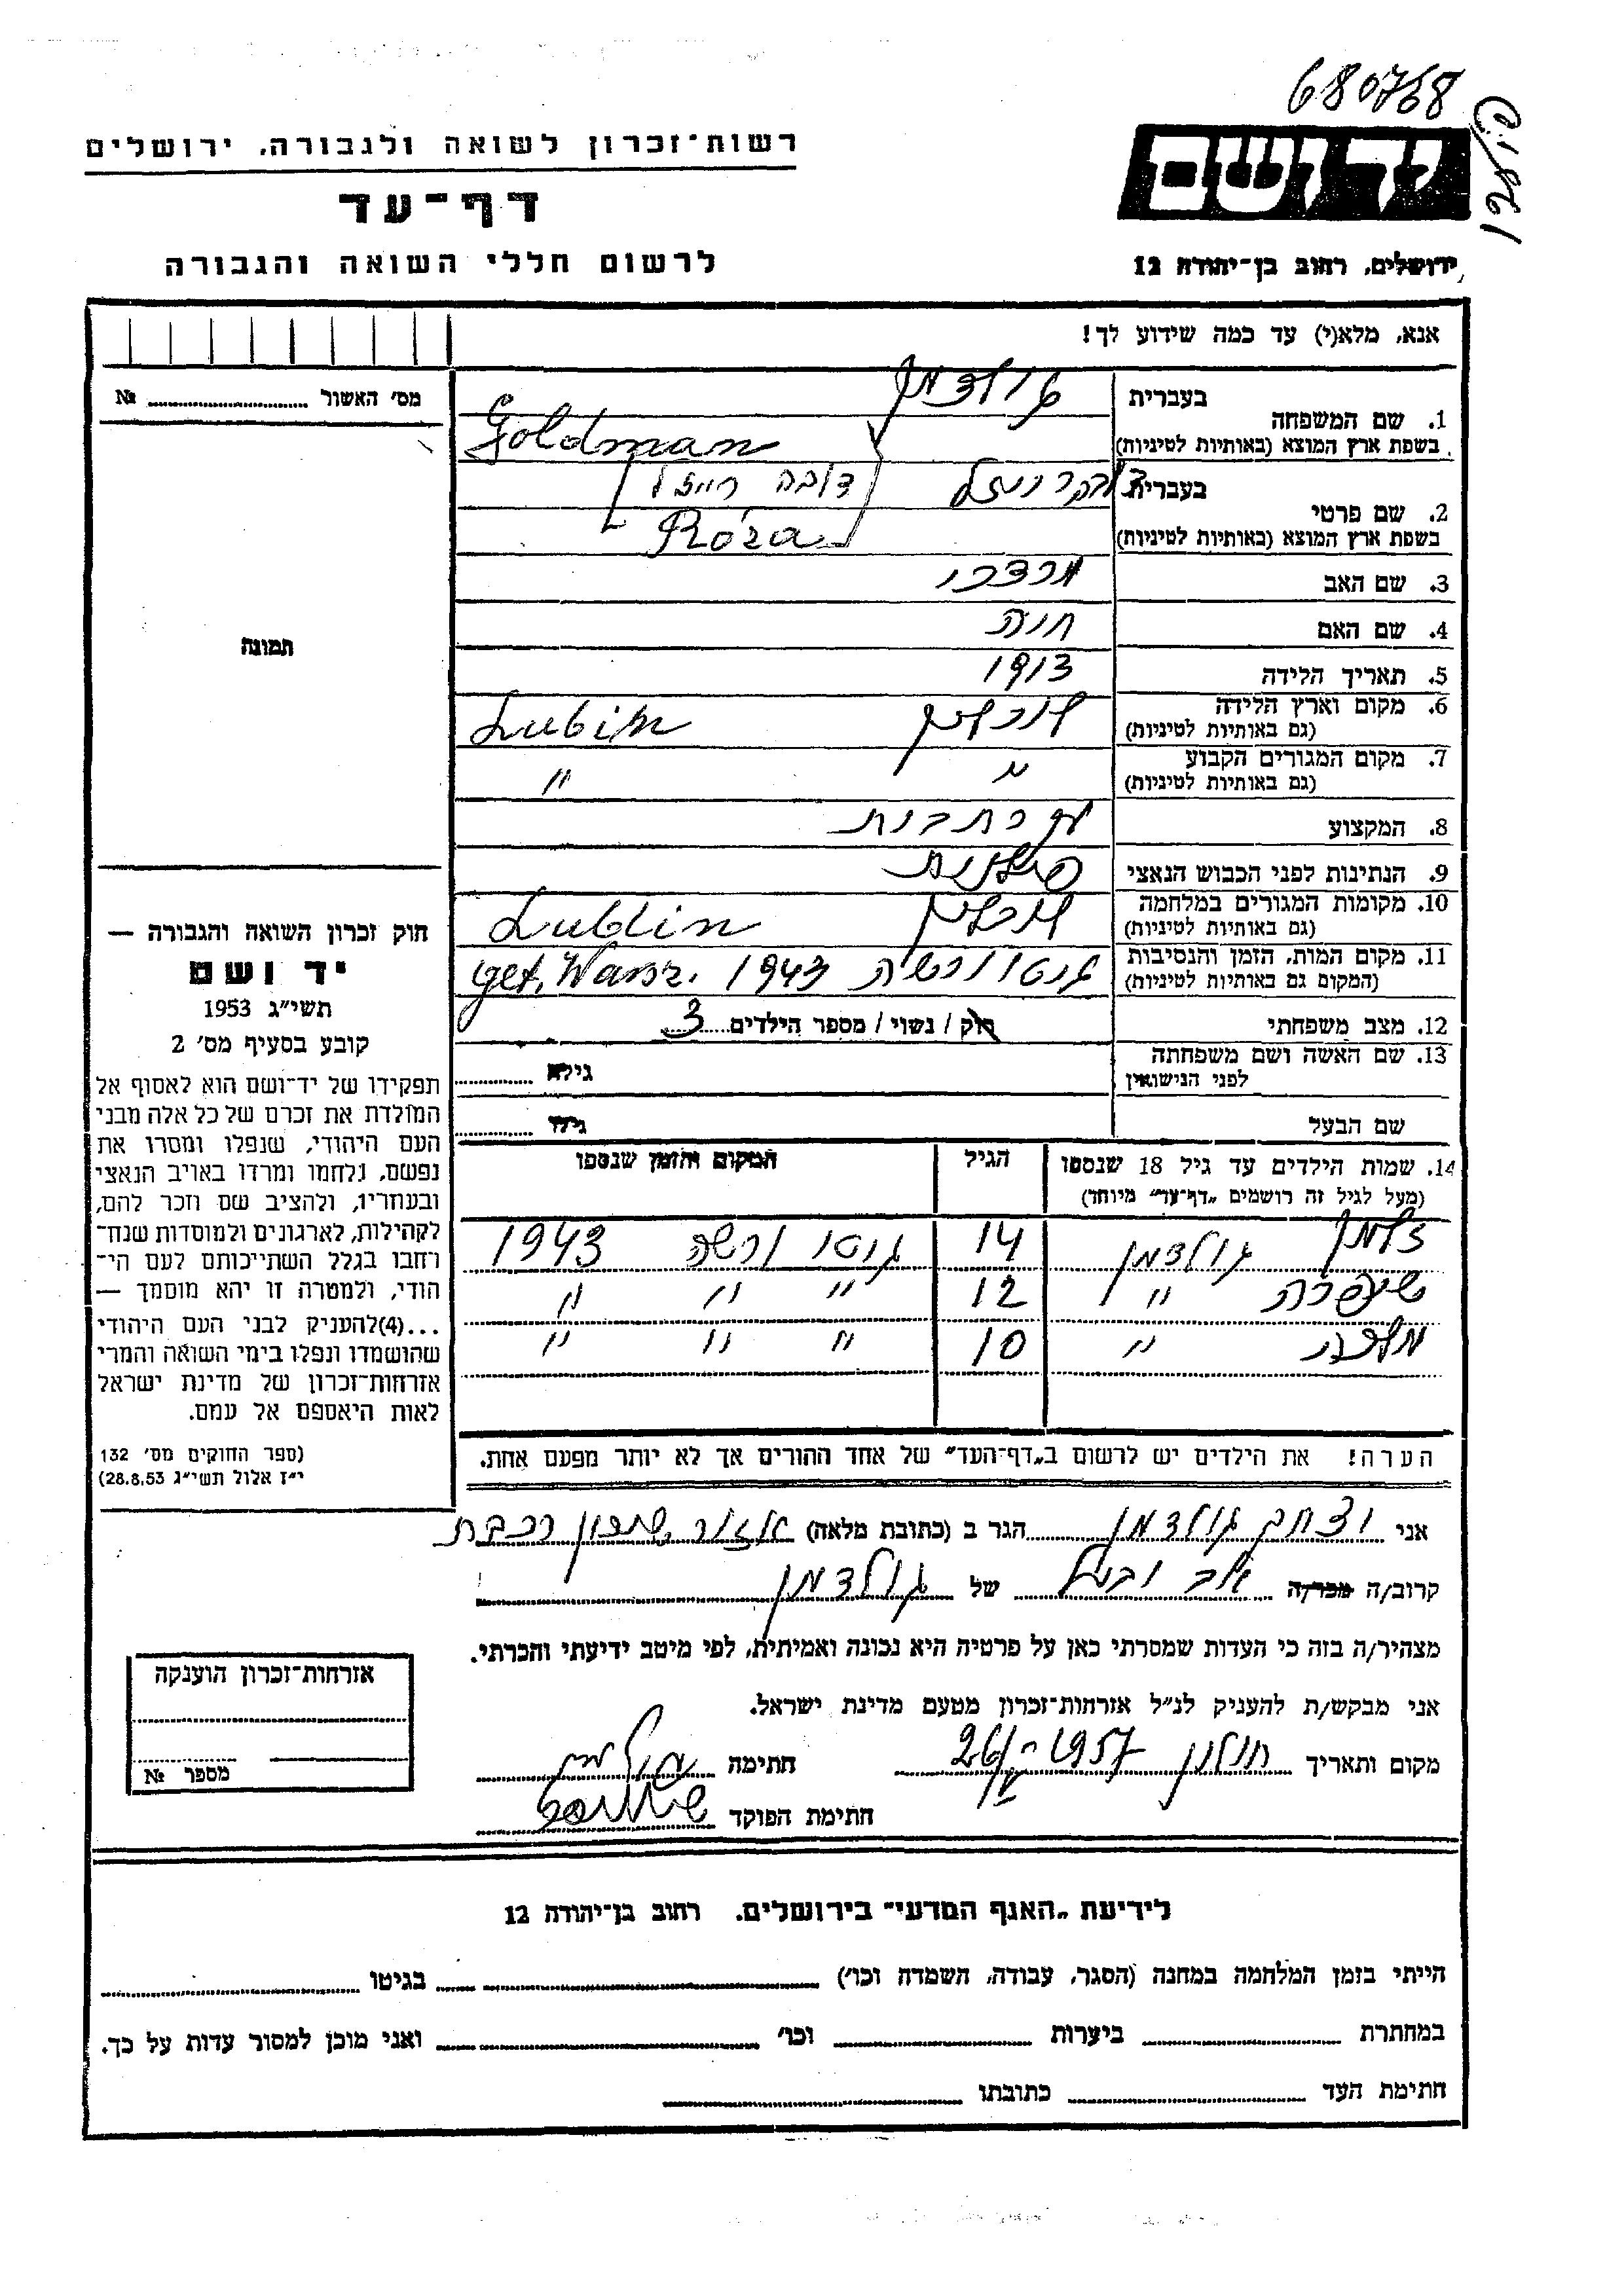 680768
רשות־זכרון לשואה ולגבורה. ירושלים
ידושם
דף־עד
לרשום חללי השואה והגבורה
ירושלים, רחוב בן־יהודה 12
אנא, מלא(י) עד כמה שידוע לך!
מס' האשור № 
1. שם המשפחה
בעברית גולדמן
בשפת ארץ המוצא (באותיות לטיניות) Goldman
2. שם פרטי
בעברית דובה רייזל
בשפת ארץ המוצא (באותיות לטיניות) Róza
3. שם האב מרדכי
4. שם האם חנה
5. תאריך הלידה 1913
6. מקום וארץ הלידה לובלין Lubin
(גם באותיות לטיניות)
7. מקום המגורים הקבוע " "
(גם באותיות לטיניות)
8. המקצוע
9. הנתינות לפני הכבוש הנאצי פולנית
10. מקומות המגורים במלחמה לובלין Lublin
(גם באותיות לטיניות)
11. מקום המות, הזמן והנסיבות גטו ורשה 1943 get. Warsz.
(המקום גם באותיות לטיניות)
12. מצב משפחתי רוק / נשוי / מספר הילדים 3
13. שם האשה ושם משפחתה גילה
לפני הנישואין
שם הבעל גילו
14. שמות הילדים עד גיל 18 שנספו הגיל המקום והזמן שנספו
(מעל לגיל זה רושמים „דף־עד" מיוחד)
זלמן גולדמן 14 גטו ורשה 1943
שיפרה " 12 " " "
מלכה " 10 " " "
הערה! את הילדים יש לרשום ב„דף־העד" של אחד ההורים אך לא יותר מפעם אחת.
תמונה
חוק זכרון השואה והגבורה —
יד ושם
תשי״ג 1953
קובע בסעיף מס' 2
תפקידו של יד־ושם הוא לאסוף אל
המולדת את זכרם של כל אלה מבני
העם היהודי, שנפלו ומסרו את
נפשם, נלחמו ומרדו באויב הנאצי
ובעוזריו, ולהציב שם וזכר להם,
לקהילות, לארגונים ולמוסדות שנח־
רחבו בגלל השתייכותם לעם הי־
הודי, ולמטרה זו יהא מוסמך —
...(4)להעניק לבני העם היהודי
שהושמדו ונפלו בימי השואה והמרי
אזרחות־זכרון של מדינת ישראל
לאות היאספם אל עמם.
(ספר החוקים מס' 132
י״ז אלול תשי״ג 28.8.53)
אני יצחק גולדמן הגר ב (כתובת מלאה) אזור שכון רכבת
קרוב/ה מכר/ה אב ובעל של גולדמן
מצהיר/ה בזה כי העדות שמסרתי כאן על פרטיה היא נכונה ואמיתית, לפי מיטב ידיעתי והכרתי.
אני מבקש/ת להעניק לנ״ל אזרחות־זכרון מטעם מדינת ישראל.
מקום ותאריך חולון 26/V-1957 חתימה
חתימת הפוקד
אזרחות־זכרון הוענקה
מספר №
לידיעת „האגף המדעי" בירושלים. רחוב בן־יהודה 12
הייתי בזמן המלחמה במחנה (הסגר, עבודה, השמדה וכו') בגיטו
במחתרת ביערות וכו' ואני מוכן למסור עדות על כך.
חתימת העד כתובתו